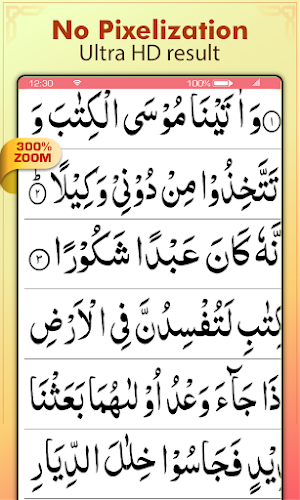 No Pixelization
Ultra HD result
12:30 100%
300%
ZOOM
۱ وَ اٰتَيْنَا مُوْسَى الْكِتٰبَ وَ
تَتَّخِذُوْا مِنْ دُوْنِيْ وَكِيْلًا ۲
نَّهٗ كَانَ عَبْدًا شَكُوْرًا ۳
كِتٰبِ لَتُفْسِدُنَّ فِي الْاَرْضِ
ذَا جَآءَ وَعْدُ اُوْلٰىهُمَا بَعَثْنَا
دِيْدٍ فَجَاسُوْا خِلٰلَ الدِّيَارِ